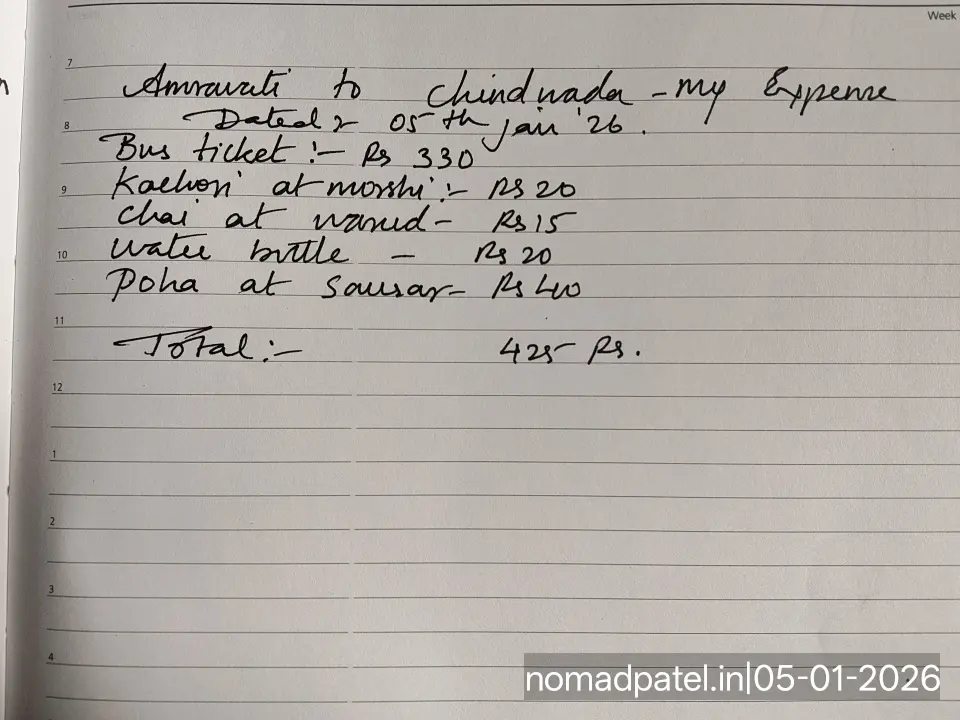 Week
7
Amravati to Chindwada - my Expense
8
Dated :- 05th Jan '26.
Bus ticket :- Rs 330
9
Kachori at morshi :- Rs 20
Chai at warud - Rs 15
10
Water bottle - Rs 20
Poha at Sausar - Rs 40
11
Total :- 425 Rs.
12
1
2
3
4
nomadpatel.in|05-01-2026